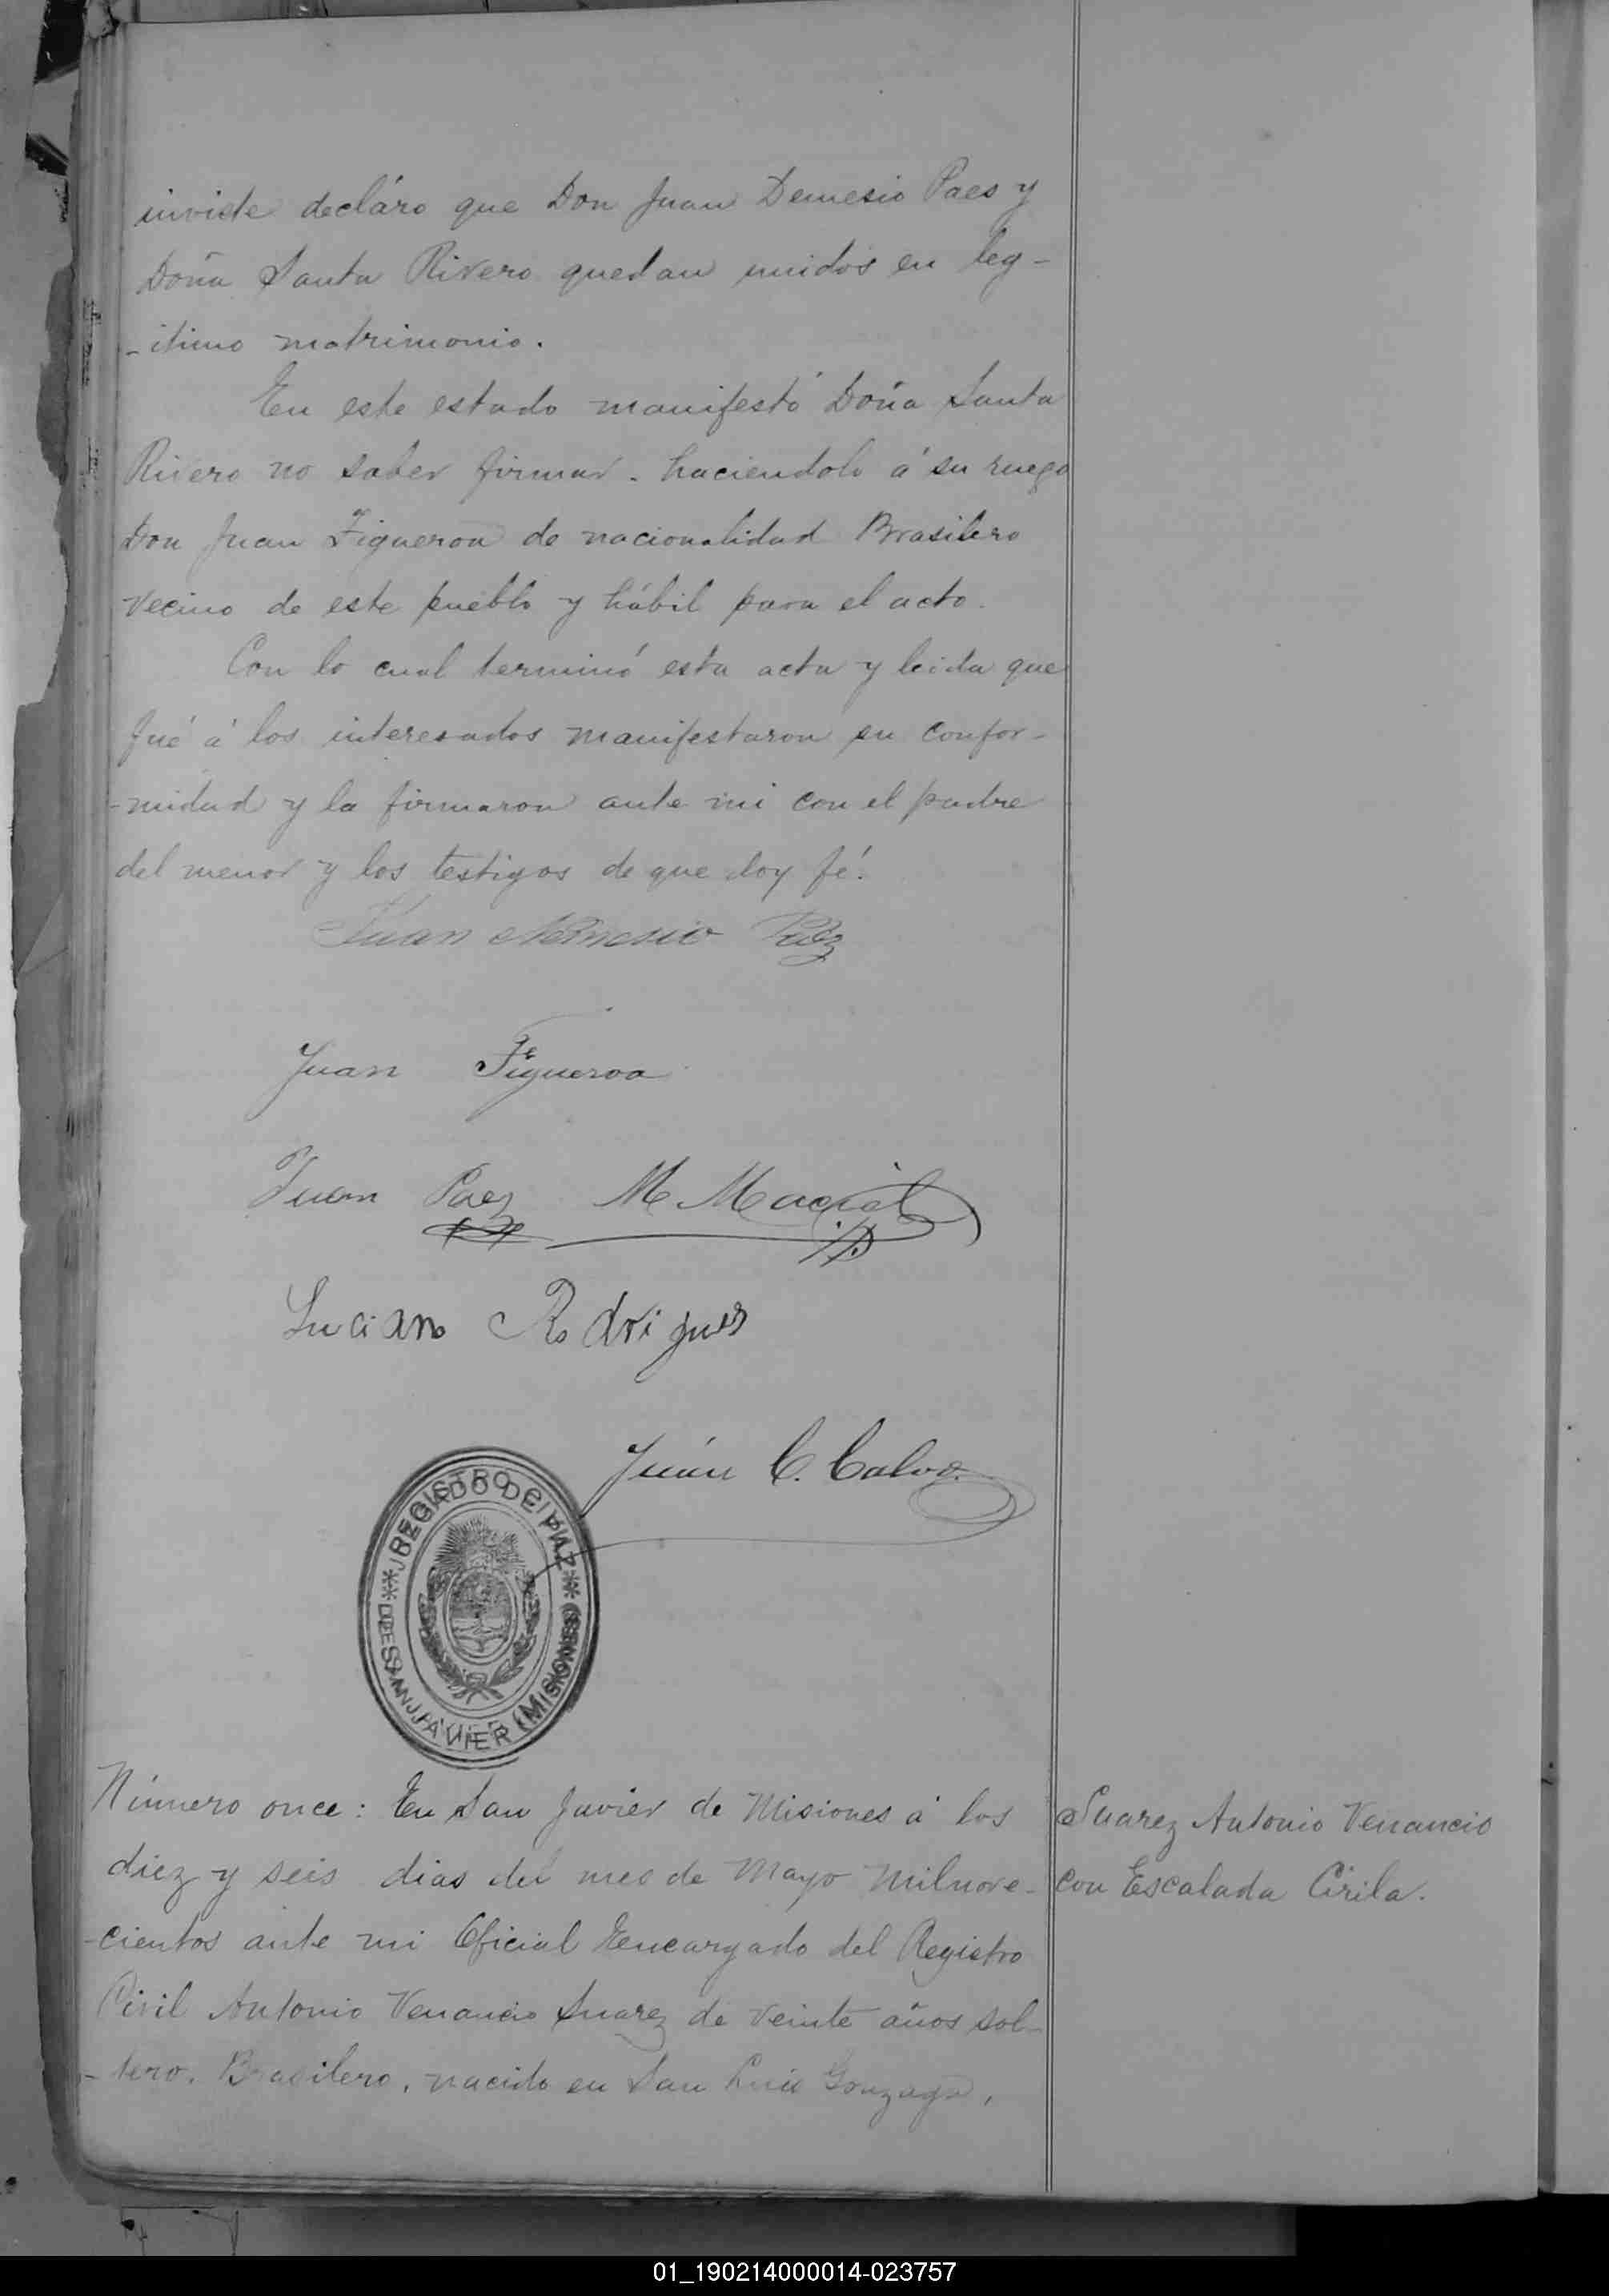 inviste decláro que Don Juan Demesio Paes y
Doña Santa Rivero quedan unidos en leg-
-itimo matrimonio.
En este estado manifestó Doña Santa
Rivero no saber firmar. haciendolo á su ruego
Don Juan Figueroa de nacionalidad Brasilero
vecino de este pueblo y hábil para el acto.
Con lo cual terminó esta acta y leida que
fué á los interesados manifestaron su confor-
-midad y la firmaron ante mi con el padre
del menor y los testigos de que doy fé.
Juan Nemesio Paez
Juan Figueroa
Juan Paez M. Maciel
Luciano Rodrigues
Juán C. Calvo.
REGISTRO CIVIL
JUZGADO DE PAZ
DE SAN JAVIER (MISIONES)
Número once: En San Javier de Misiones á los
diez y seis dias del mes de Mayo milnove-
-cientos ante mi Oficial Encargado del Registro
Civil Antonio Venancio Suarez de veinte años sol-
-tero, Brasilero, nacido en San Luis Gonzaga,
Suarez Antonio Venancio
con Escalada Cirila.
01_190214000014-023757